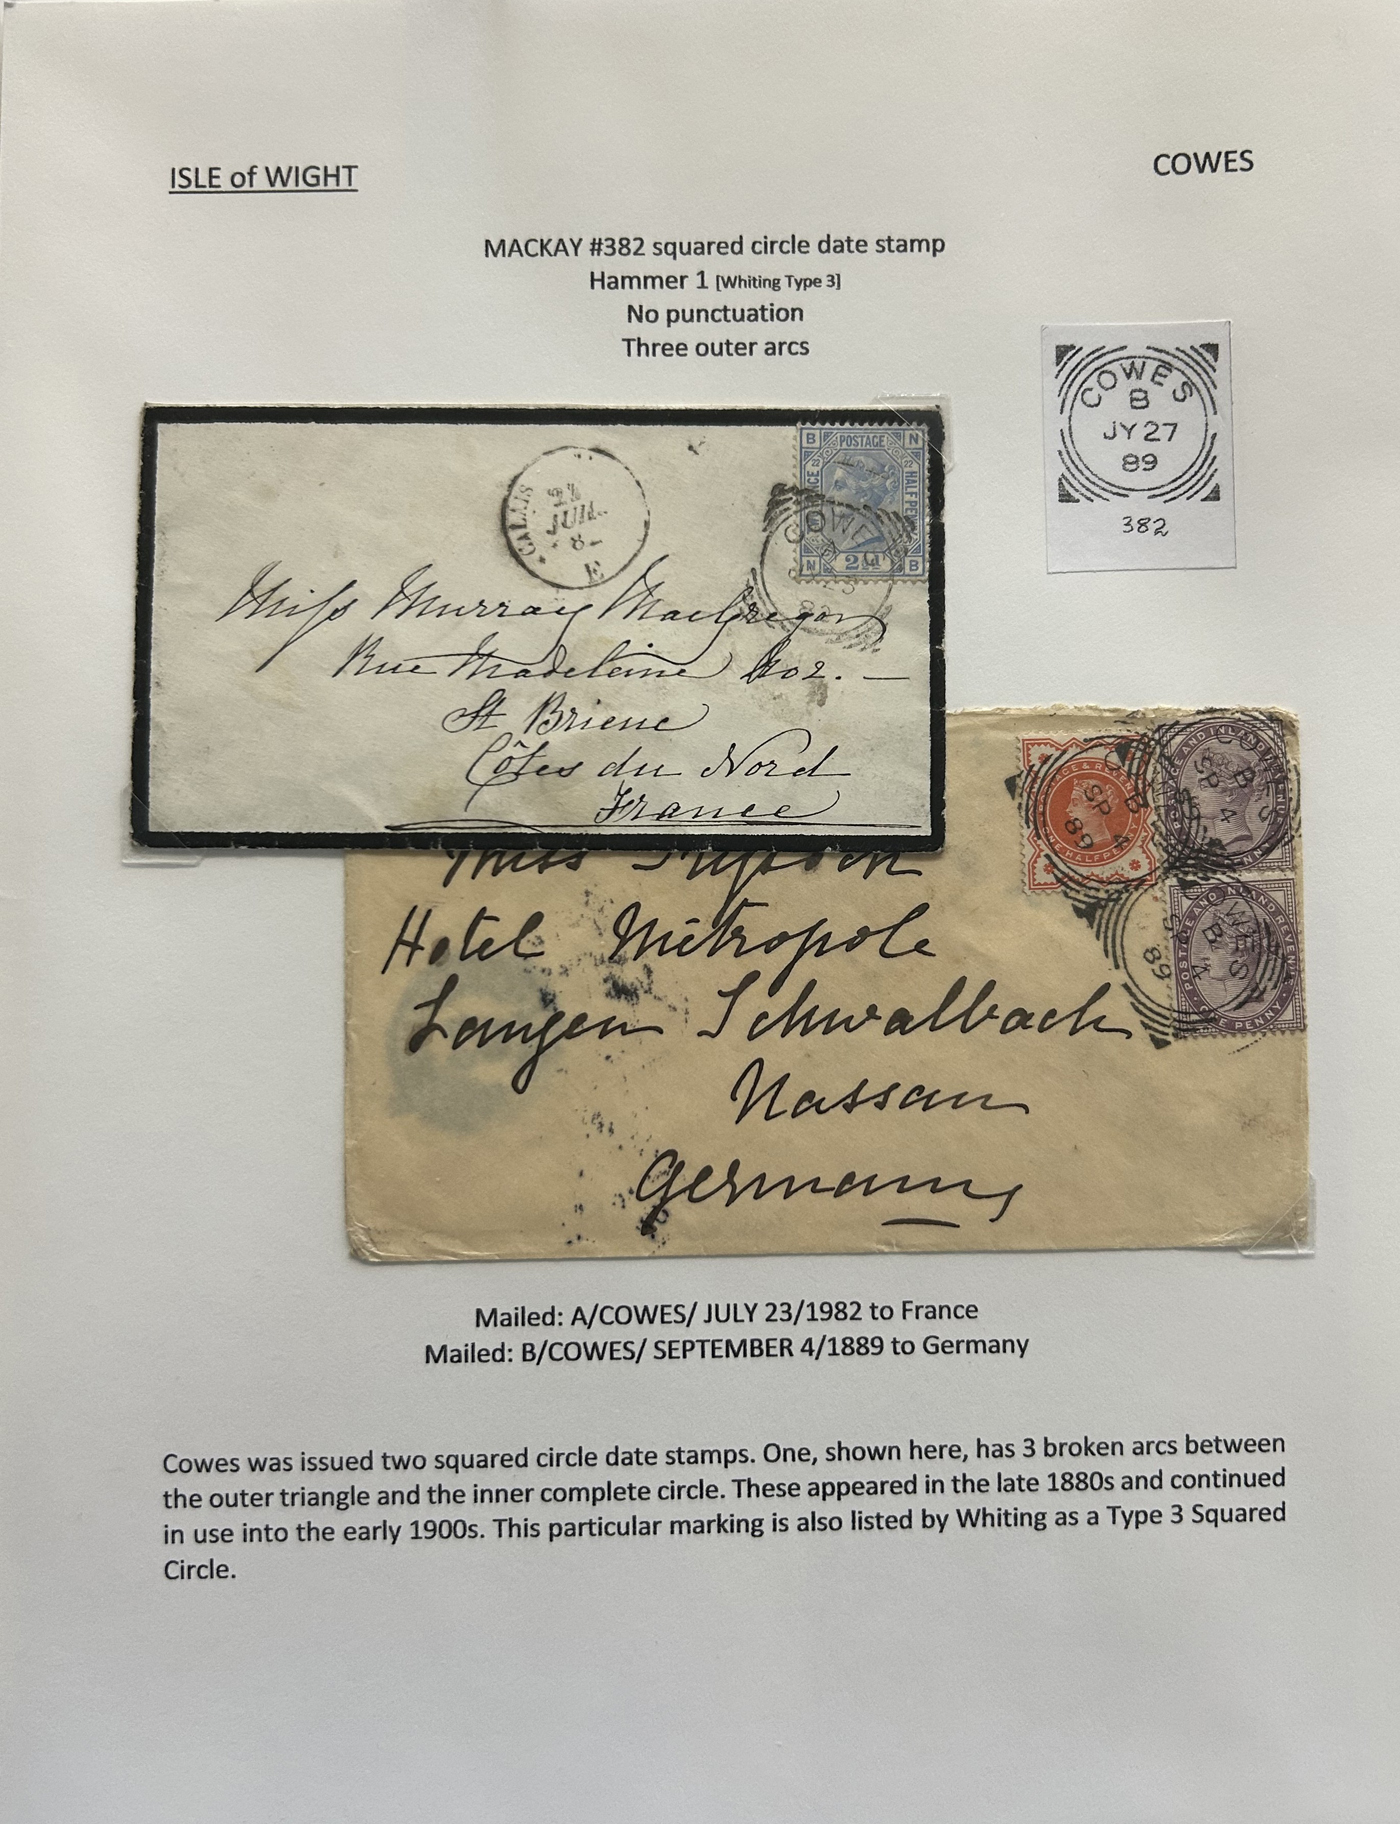 ISLE of WIGHT
COWES
MACKAY #382 squared circle date stamp
Hammer 1 [Whiting Type 3]
No punctuation
Three outer arcs
COWES
B
JY 27
89
382
B POSTAGE N
22 22
HALF PEN
N 2½ B
CALAIS
JUIL
8
E
COWE
23
Miss Murray MacGregor
Rue Madeleine No 2. —
St Brieuc
Côtes du Nord
France
Miss
Hotel Métropole
Langen Schwalbach
Nassau
Germany
B
SP 4
89
COWES
B
SP 4
POSTAGE AND INLAND REVENUE
ONE PENNY
WES
B
4
89
Mailed: A/COWES/ JULY 23/1982 to France
Mailed: B/COWES/ SEPTEMBER 4/1889 to Germany
Cowes was issued two squared circle date stamps. One, shown here, has 3 broken arcs between
the outer triangle and the inner complete circle. These appeared in the late 1880s and continued
in use into the early 1900s. This particular marking is also listed by Whiting as a Type 3 Squared
Circle.